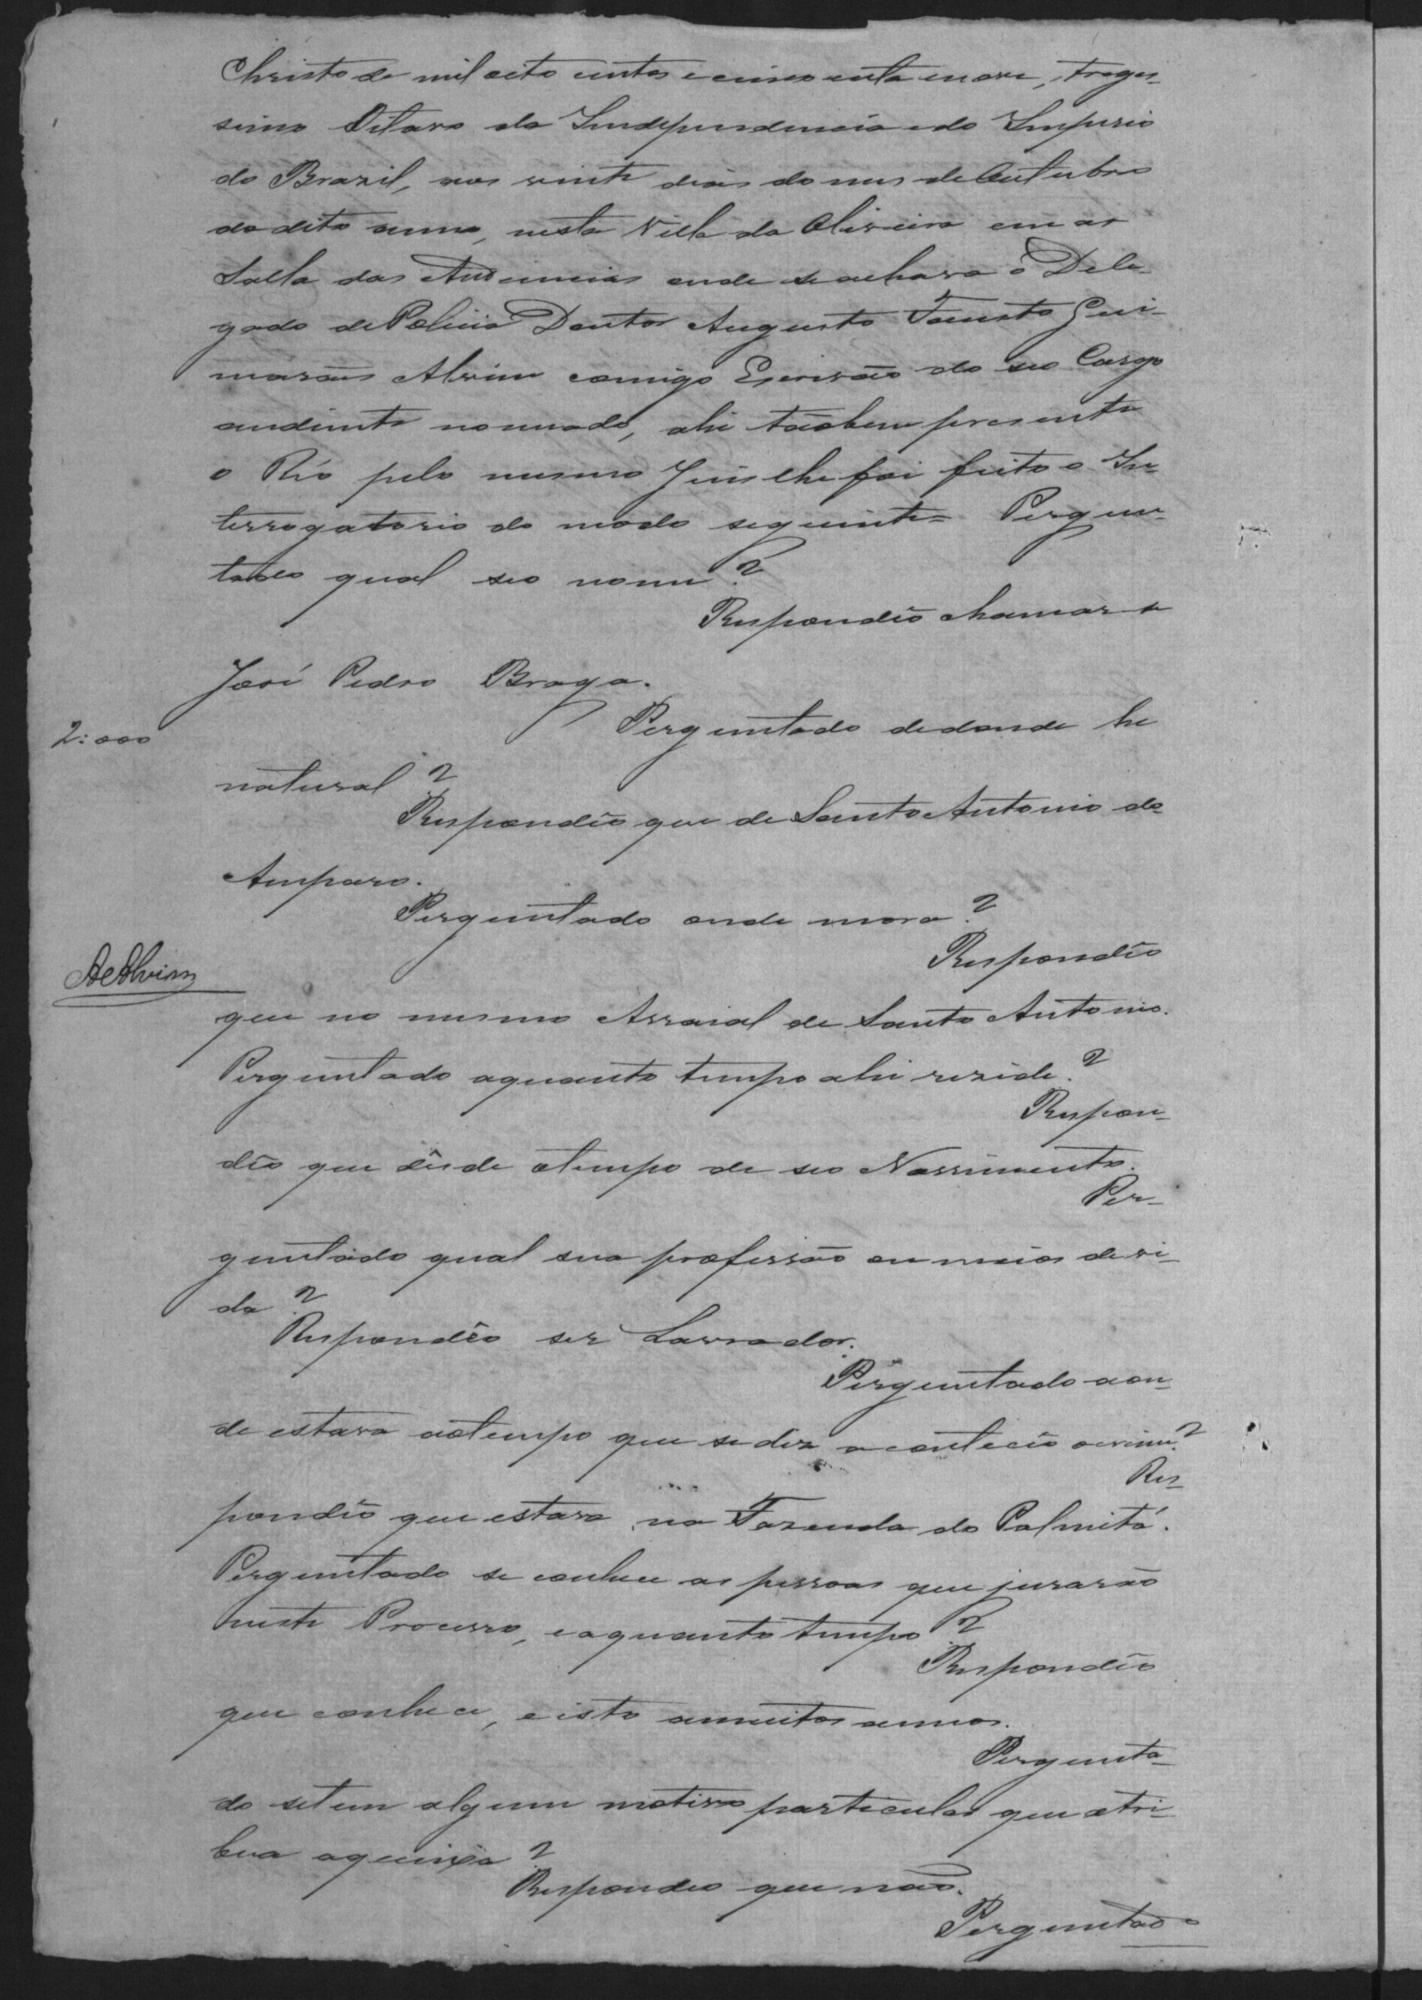 Christo de mil oito centos e cincoenta e nove, trage-
simo Oitavo da Independencia e do Imperio
do Brazil, aos vinte dias do mes de Outubro
do dito anno, nesta Villa da Oliveira em as
Salla das Audiencias onde se achava o Dele-
gado de Policia Doutor Augusto Fausto Gui-
marães Alvim comigo Escrivão do seo Cargo
endiente nomeado, ahi tãobem presente
o Réo pelo mesmo Juis lhe foi feito o In-
terrogatorio do modo seguinte = Pergun-
tado qual seo nome?
Respondêo chamar se
José Pedro Braga.
Perguntado dedonde he
2:000
natural?
Respondêo que de Santo Antonio do
Amparo.
Perguntado onde mora?
Respondêo
AeAlvim
que no mesmo Arraial de Santo Antonio.
Perguntado aquanto tempo ahi rezide?
Respon-
dêo que dêsde otempo de seo Nassimento.
Per-
guntado qual sua profissão ou meios devi-
da?
Respondêo ser Lavrador.
Perguntado aon-
de estava aotempo que sediz aconteceo ocrime?
Res-
pondêo que estava na Fazenda do Palmitá.
Perguntado se conhece as pessoas que jurarão
neste Processo, eaquanto tempo?
Respondêo
que conhece, e isto amuitos annos.
Pergunta-
do setem algum motivo particular que atri-
bua aqueixa?
Respondeo que não.
Perguntado